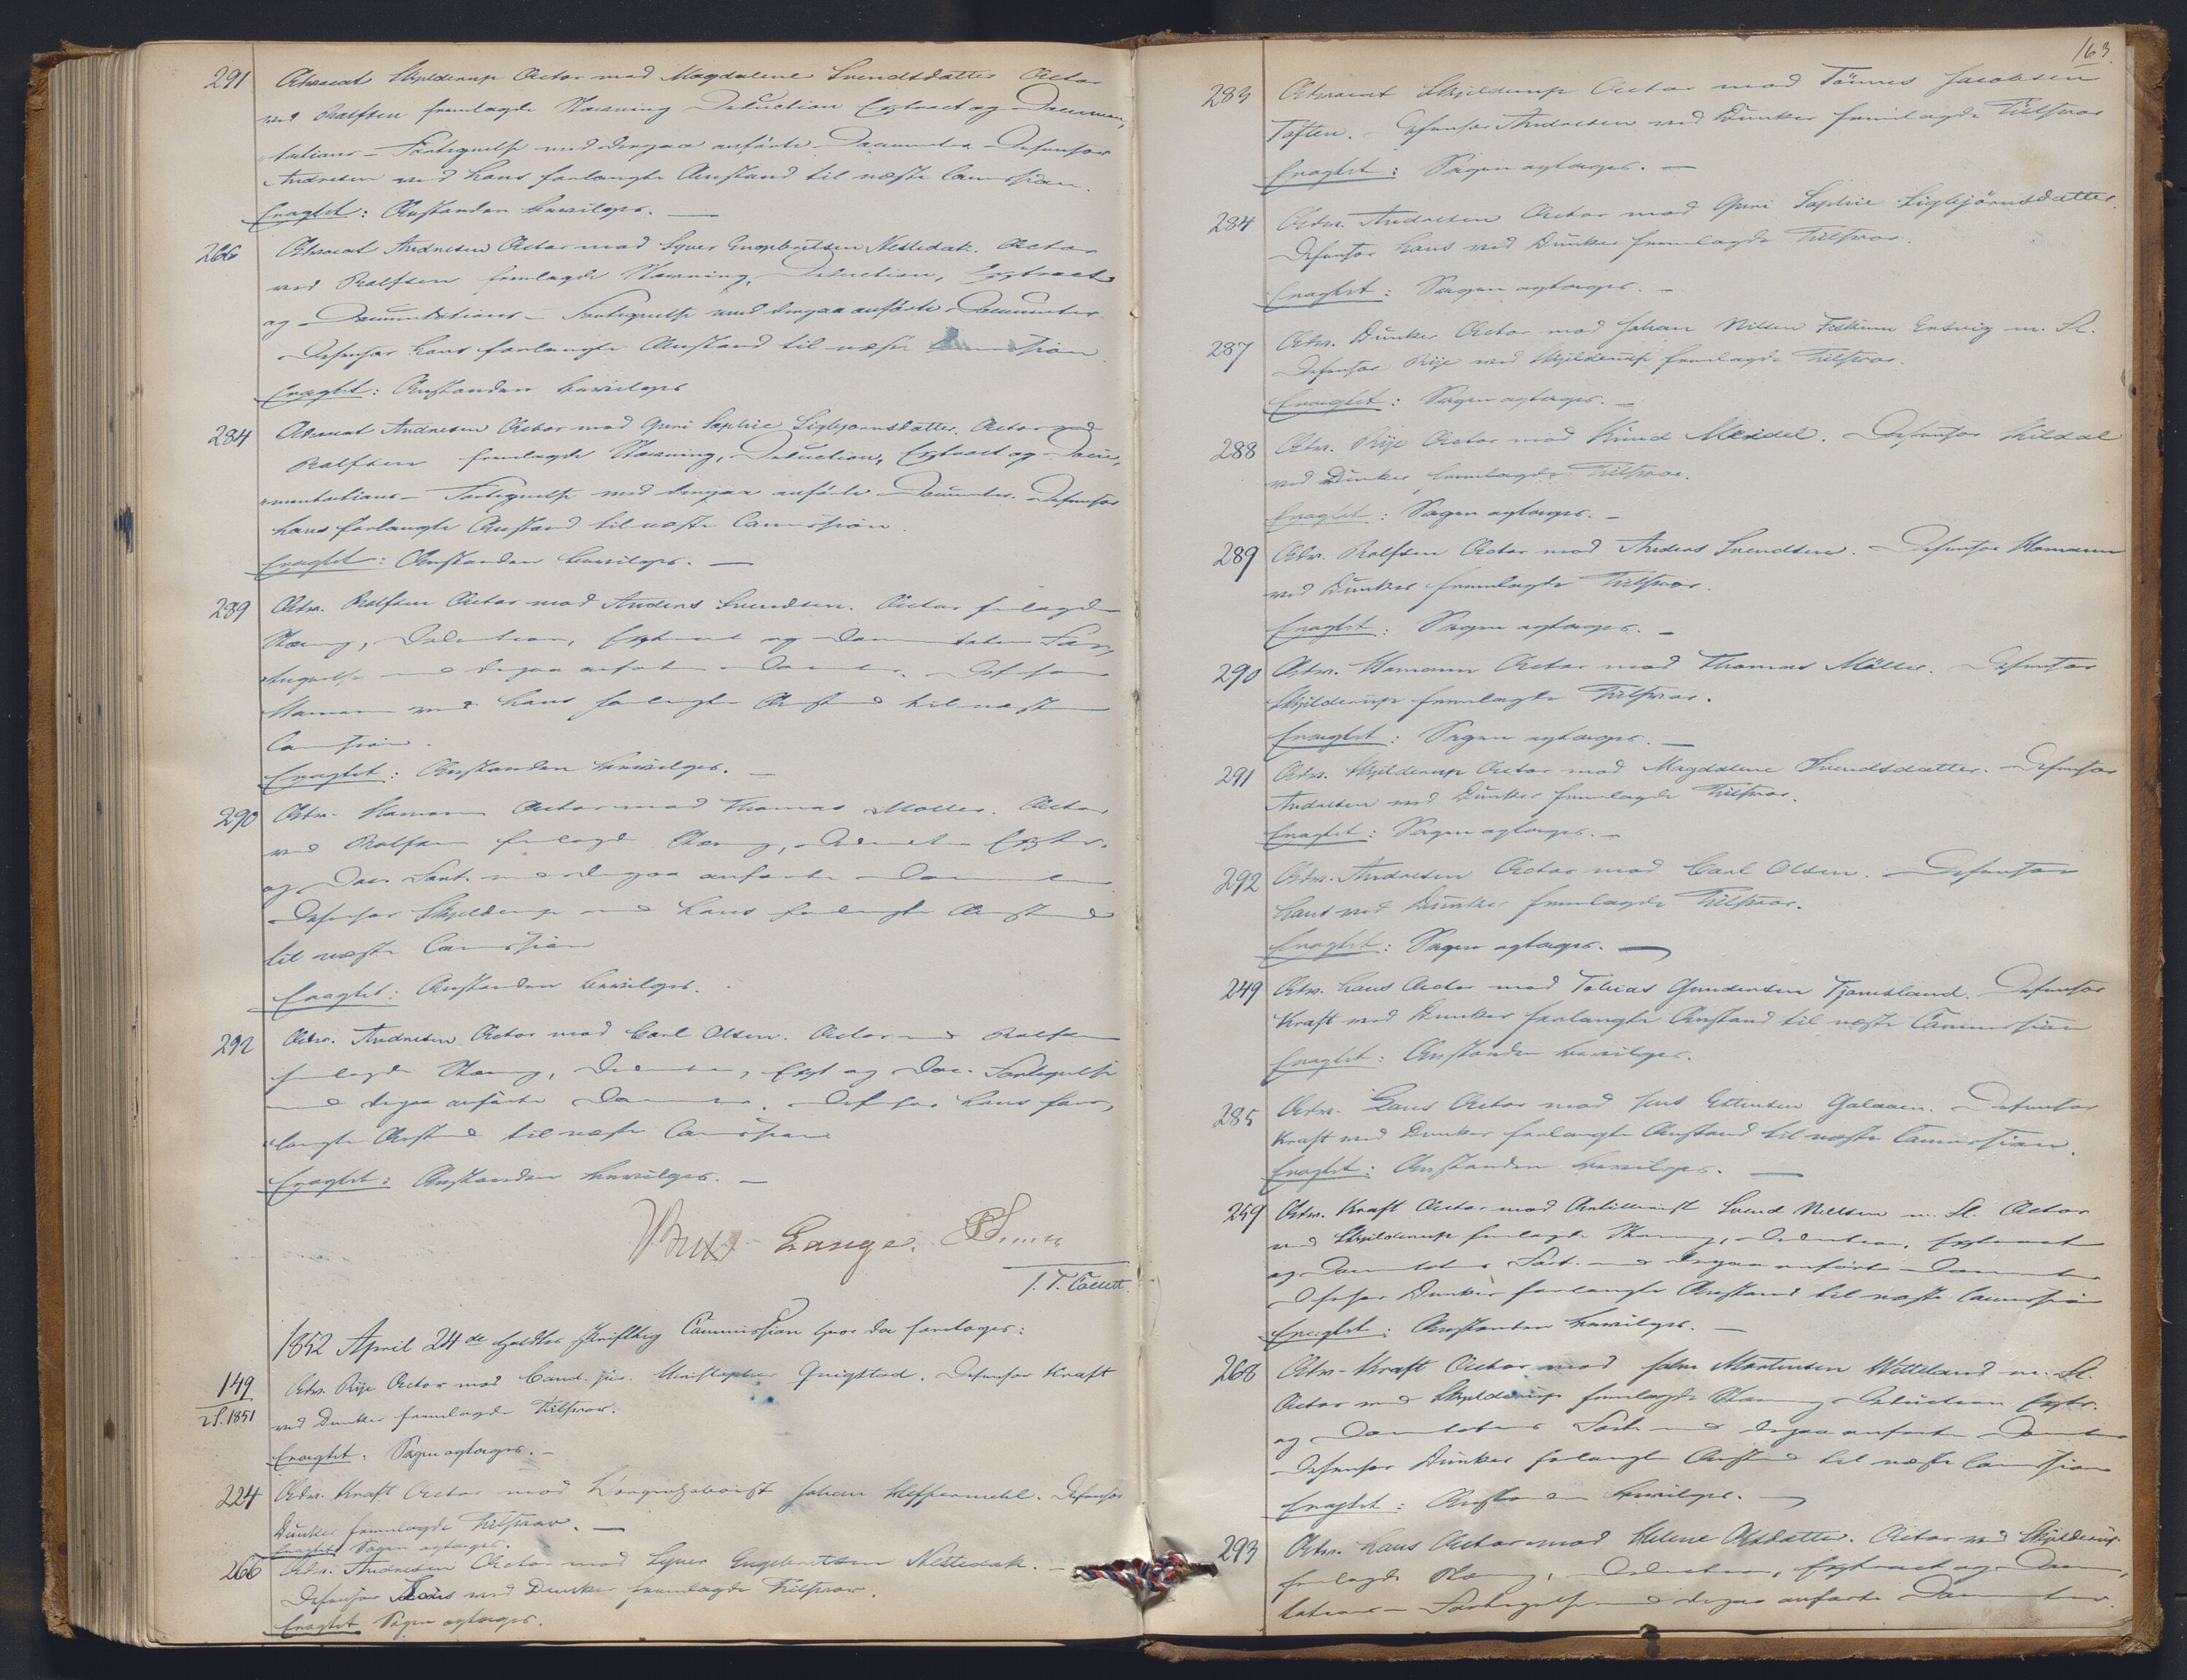 291 Advocat Skjelderup Actor mod Magdalene Svendsdatter Actor
ved Rolfsen fremlagde Stævning Deduction Extract og Documen-
tations- Fortegnelse med derpaa anførte Documenter. Defensor
Andresen ved Hans forlangte Anstand til næste Commission.
Eragtet: Anstanden bevilges. —
266 Advocat Andresen Actor mod Syver Engebretsen Nestedak. Actor
ved Rolfsen fremlagde Stævning, Deduction, Extract
og Documentations- Fortegnelse med derpaa anførte Documenter.
Defensor Hans forlangte Anstand til næste Commission
Eragtet: Anstanden bevilges
284 Advocat Andresen Actor mod Guri Sophie Sigbjørnsdatter. Actor ved
Rolfsen fremlagde Stævning, Deduction, Extract og Docu-
mentations- Fortegnelse med derpaa anførte Documenter. Defensor
Hans forlangte Anstand til næste Commission.
Eragtet: Anstanden bevilges. —
289 Adv. Rolfsen Actor mod Anders Svendsen. Actor fremlagde
Stævning, Deduction, Extract og Documentations For-
tegnelse med derpaa anførte Documenter. Defensor
Homann ved Hans forlangte Anstand til næste
Commission.
Eragtet: Anstanden bevilges. —
290 Adv. Homann Actor mod Thomas Møller. Actor
ved Rolfsen fremlagde Stævning, Deduction Extr.
og Doc. Fort. med derpaa anførte Documenter
Defensor Skjelderup ved Hans forlangte Anstand
til næste Commission
Eragtet: Anstanden bevilges.
292 Adv. Andresen Actor mod Carl Olsen. Actor ved Rolfsen
fremlagde Stævning, Deduction, Ext og Doc. Fortegnelse
med derpaa anførte Documenter. Defensor Hans for-
langte Anstand til næste Commission
Eragtet: Anstanden bevilges. —
Lange.
J. T. Collett.
1852 April 24de holdtes skriftlig Commission hvor da foretoges:
149 / 2S. 1851 Adv. Rije Actor mod Cand. jur. Christopher Qvigstad. Defensor Kraft
ved Dunker fremlagde Tilsvar.
Eragtet. Sagen optages. —
224 Adv. Kraft Actor mod Johan Heffermehl. Defensor
Dunker fremlagde Tilsvar. —
Eragtet Sagen optages.
266 Adv. Andresen Actor mod Syver Engebretsen Nestedak. —
Defensor Hans ved Dunker fremlagde Tilsvar.
Eragtet Sagen optages.
163.
283 Advocat Skjelderup Actor mod Tönnes Jacobsen
Toften. Defensor Andresen ved Dunker fremlagde Tilsvar
Eragtet: Sagen optages. —
284 Adv. Andresen Actor mod Guri Sophie Sigbjörnsdatter.
Defensor Hans ved Dunker fremlagde Tilsvar.
Eragtet: Sagen optages. —
287 Adv. Dunker Actor mod Johan Nilsen m. Fl.
Defensor Rije ved Skjelderup fremlagde Tilsvar.
Eragtet: Sagen optages. —
288 Adv. Rije Actor mod Knud Meidel. Defensor Hildal
ved Dunker fremlagde Tilsvar.
Eragtet: Sagen optages. —
289 Adv. Rolfsen Actor mod Anders Svendsen. Defensor Homann
ved Dunker fremlagde Tilsvar.
Eragtet: Sagen optages. —
290 Adv. Homann Actor mod Thomas Möller. Defensor
Skjelderup fremlagde Tilsvar.
Eragtet: Sagen optages. —
291 Adv. Skjelderup Actor mod Magdalene Svendsdatter. Defensor
Andresen ved Dunker fremlagde Tilsvar.
Eragtet: Sagen optages. —
292 Adv. Andresen Actor mod Carl Olsen. Defensor
Hans ved Dunker fremlagde Tilsvar.
Eragtet: Sagen optages. —
249 Adv. Hans Actor mod Tobias Gundersen Tjomsland. Defensor
Kraft ved Dunker forlangte Anstand til næste Commission
Eragtet: Anstanden bevilges.
285 Adv. Hans Actor mod Jens Ellertsen Galaaen. Defensor
Kraft ved Dunker forlangte Anstand til næste Commission.
Eragtet: Anstanden bevilges. —
259 Adv. Kraft Actor mod Artillerist Svend Nilsen m. Fl. Actor
ved Skjelderup fremlagde Stævning, Deduction, Extract
og Documentations Fort. med derpaa anførte Documenter
Defensor Dunker forlangte Anstand til næste Commission
Eragtet: Anstanden bevilges. —
268 Adv. Kraft Actor mod John Mortensen Watteland m. Fl.
Actor ved Skjelderup fremlagde Stævning Deduction Extr.
og Documentations Fort. med derpaa anførte Documenter
Defensor Dunker forlangte Anstand til næste Commission
Eragtet: Anstanden bevilges. —
293 Adv. Hans Actor mod Helene Olsdatter. Actor ved Skjelderup
fremlagde Stævning, Deduction, Extract og Documen-
tations- Fortegnelse med derpaa anførte Documenter.